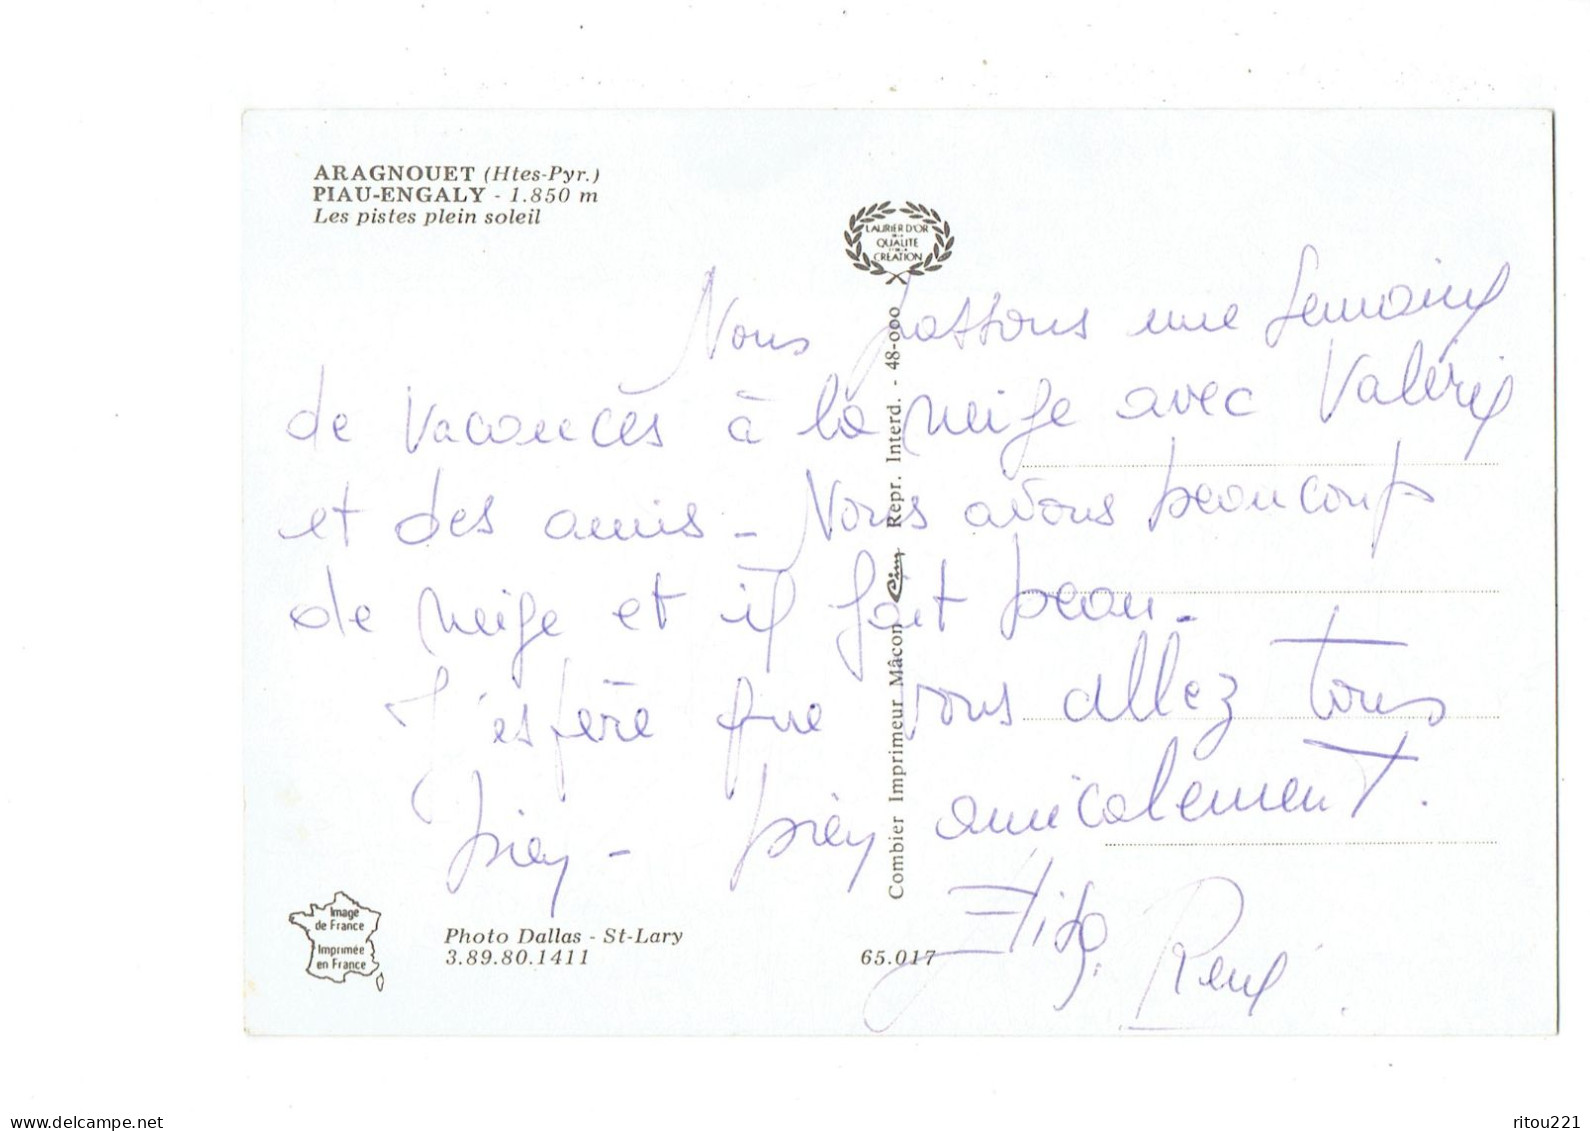 ARAGNOUET (Htes-Pyr.)
PIAU-ENGALY - 1.850 m
Les pistes plein soleil
LAURIER D'OR
DE LA
QUALITÉ
ET DE LA
CRÉATION
Nous passons une semaine
de vacances à la neige avec Valérie
et des amis - Nous avons beaucoup
de neige et il fait beau.
J'espère que vous allez tous
bien - bien amicalement.
Elisa, René
Combier Imprimeur Mâcon Cim Repr. Interd. - 48-000
Image
de France
Imprimée
en France
Photo Dallas - St-Lary
3.89.80.1411
65.017
delcampe.net
ritou221